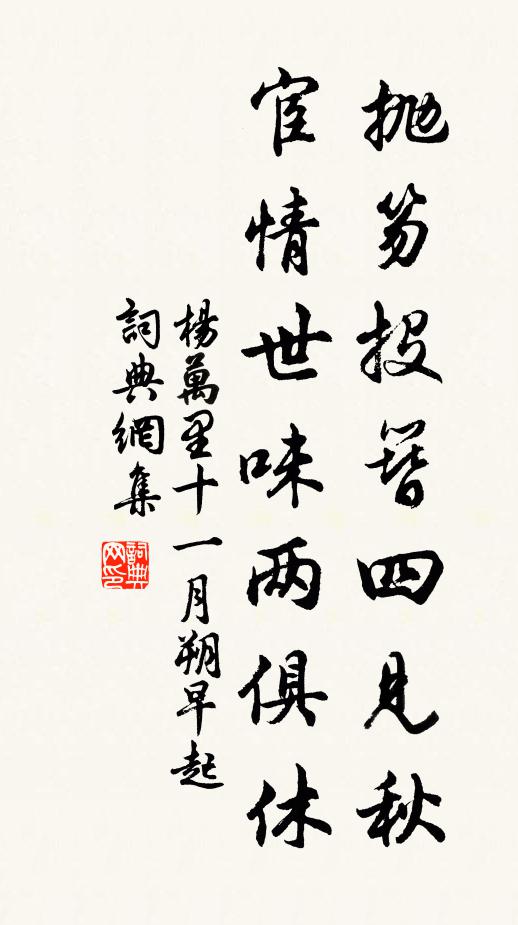 抛笏投簪四見秋
宦情世味两俱休
楊萬里十一月朔早起
詞典網集
詞典网印